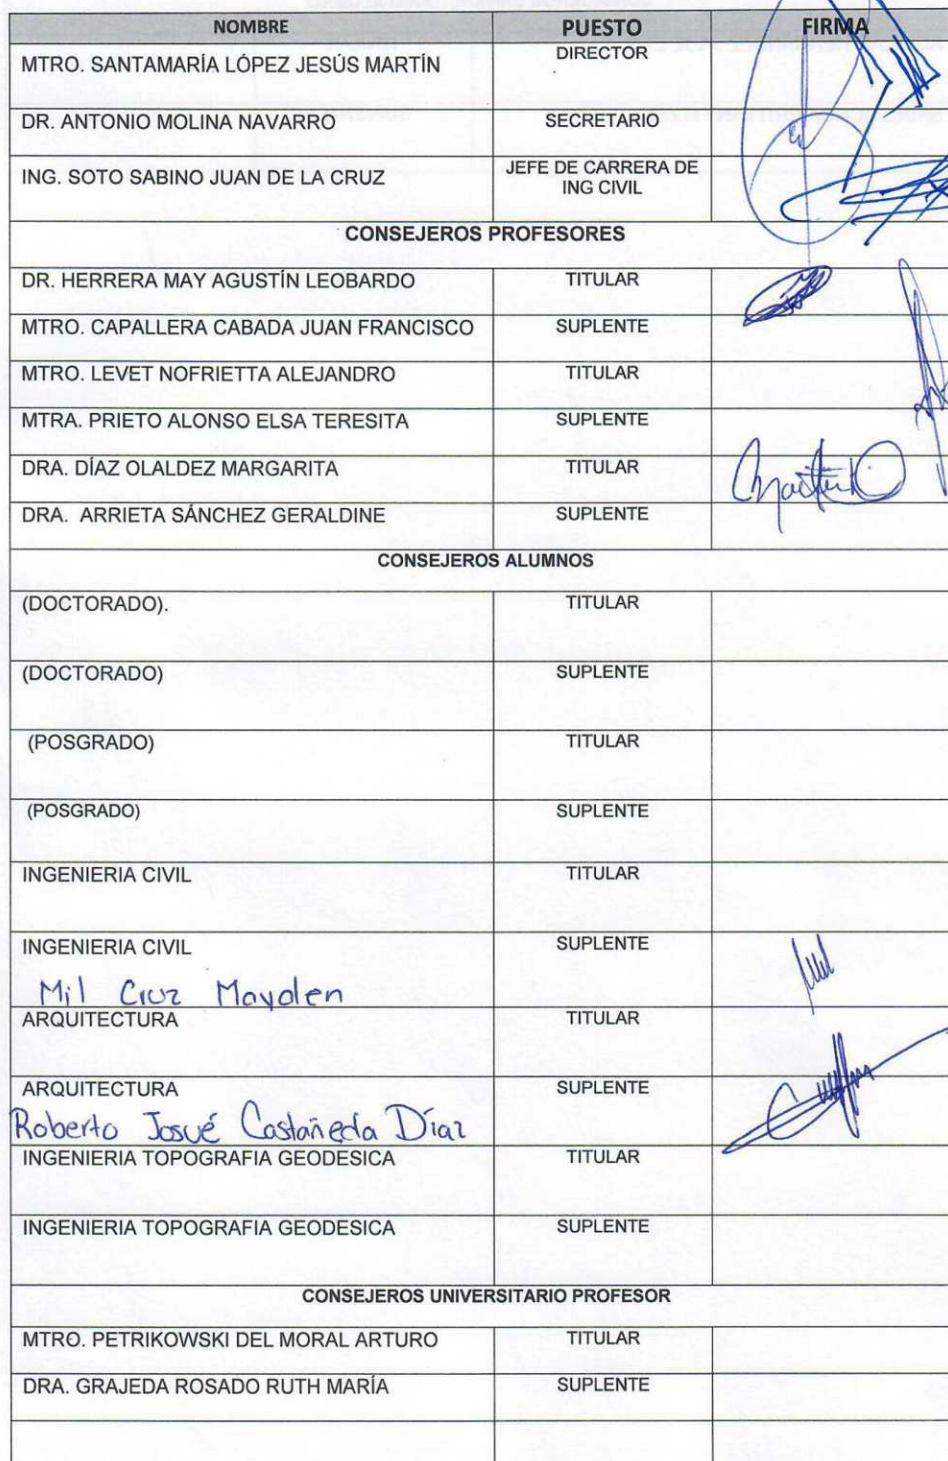 NOMBRE PUESTO FIRMA
MTRO. SANTAMARÍA LÓPEZ JESÚS MARTÍN DIRECTOR
DR. ANTONIO MOLINA NAVARRO SECRETARIO
ING. SOTO SABINO JUAN DE LA CRUZ JEFE DE CARRERA DE
ING CIVIL
CONSEJEROS PROFESORES
DR. HERRERA MAY AGUSTÍN LEOBARDO TITULAR
MTRO. CAPALLERA CABADA JUAN FRANCISCO SUPLENTE
MTRO. LEVET NOFRIETTA ALEJANDRO TITULAR
MTRA. PRIETO ALONSO ELSA TERESITA SUPLENTE
DRA. DÍAZ OLALDEZ MARGARITA TITULAR
DRA. ARRIETA SÁNCHEZ GERALDINE SUPLENTE
CONSEJEROS ALUMNOS
(DOCTORADO). TITULAR
(DOCTORADO) SUPLENTE
(POSGRADO) TITULAR
(POSGRADO) SUPLENTE
INGENIERIA CIVIL TITULAR
INGENIERIA CIVIL SUPLENTE
Mil Cruz Mayolen
ARQUITECTURA TITULAR
ARQUITECTURA SUPLENTE
Roberto Josué Castañeda Díaz
INGENIERIA TOPOGRAFIA GEODESICA TITULAR
INGENIERIA TOPOGRAFIA GEODESICA SUPLENTE
CONSEJEROS UNIVERSITARIO PROFESOR
MTRO. PETRIKOWSKI DEL MORAL ARTURO TITULAR
DRA. GRAJEDA ROSADO RUTH MARÍA SUPLENTE